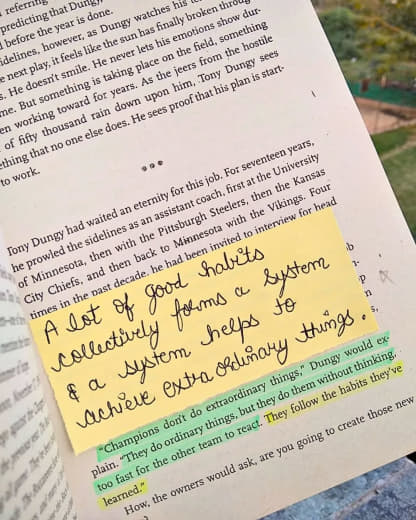 referring
predicting that Dungy,
before the year is done.
idelines, however, as Dungy watches his
next play, it feels like the sun has finally broken throu
s. He doesn't smile. He never lets his emotions show dur-
me. But something is taking place on the field, something
en working toward for years. As the jeers from the hostile
of fifty thousand rain down upon him, Tony Dungy sees
thing that no one else does. He sees proof that his plan is start-
to work.
***
Tony Dungy had waited an eternity for this job. For seventeen years,
he prowled the sidelines as an assistant coach, first at the University
of Minnesota, then with the Pittsburgh Steelers, then the Kansas
City Chiefs, and then back to Minnesota with the Vikings. Four
times in the past decade, he had been invited to interview for head
A lot of good habits
collectively forms a system
& a system helps to
achieve extra ordinary things.
"Champions don't do extraordinary things," Dungy would ex-
plain. "They do ordinary things, but they do them without thinking,
too fast for the other team to react. They follow the habits they've
learned."
How, the owners would ask, are you going to create those new